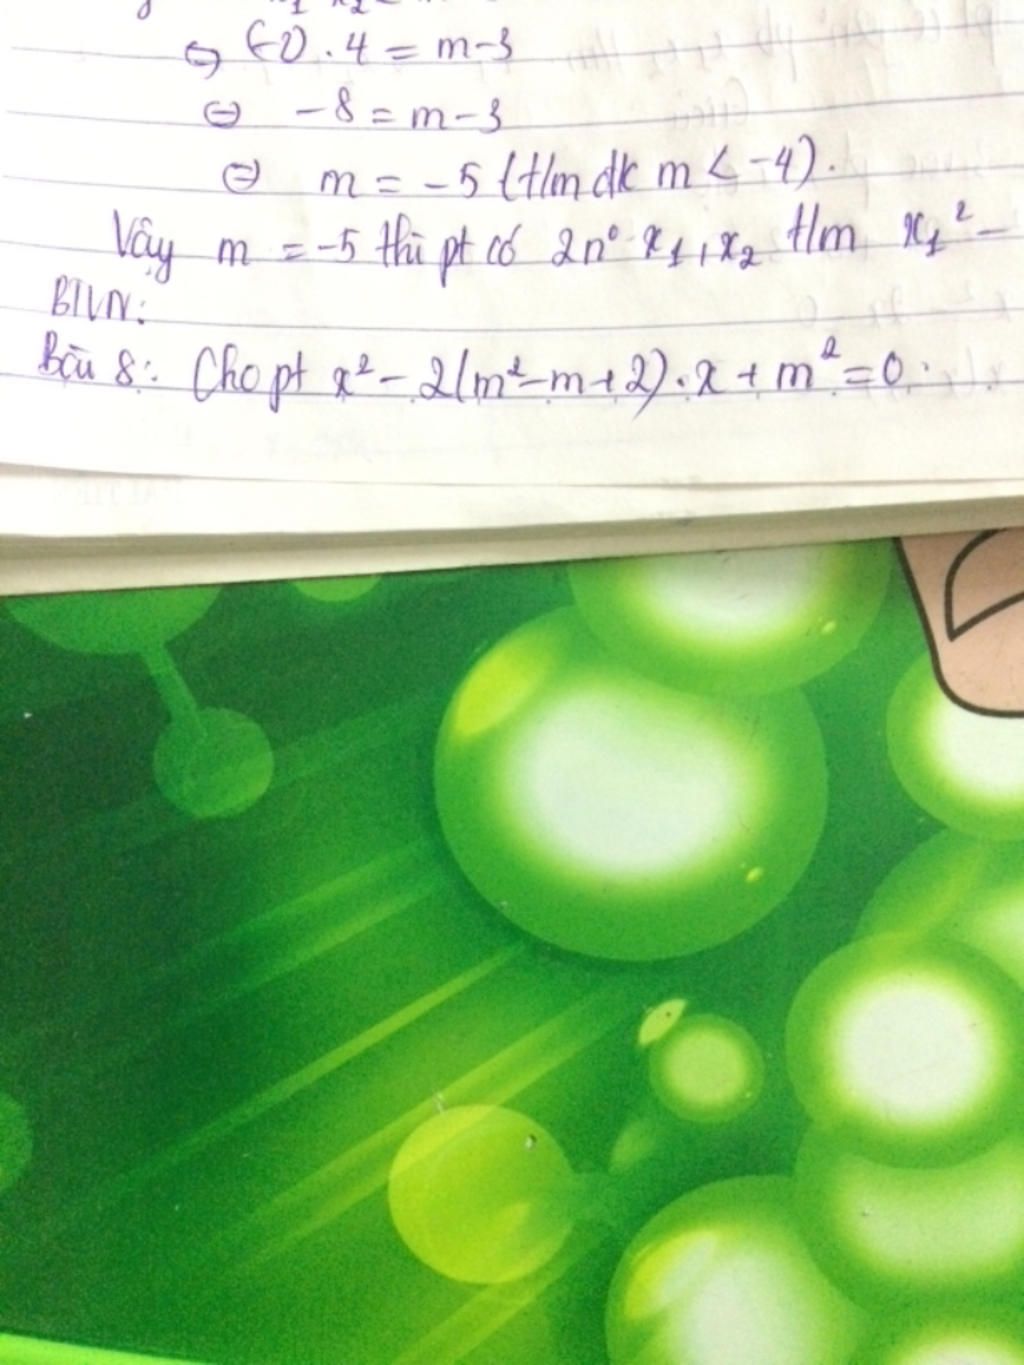 ⇔ (-2) . 4 = m-3
⇔ -8 = m-3
⇔ m = -5 (t/m đk m < -4).
Vậy m = -5 thì pt có 2n° x₁, x₂ t/m x₁² -
BTVN:
Bài 8: Cho pt x² - 2(m²-m+2).x + m² = 0.